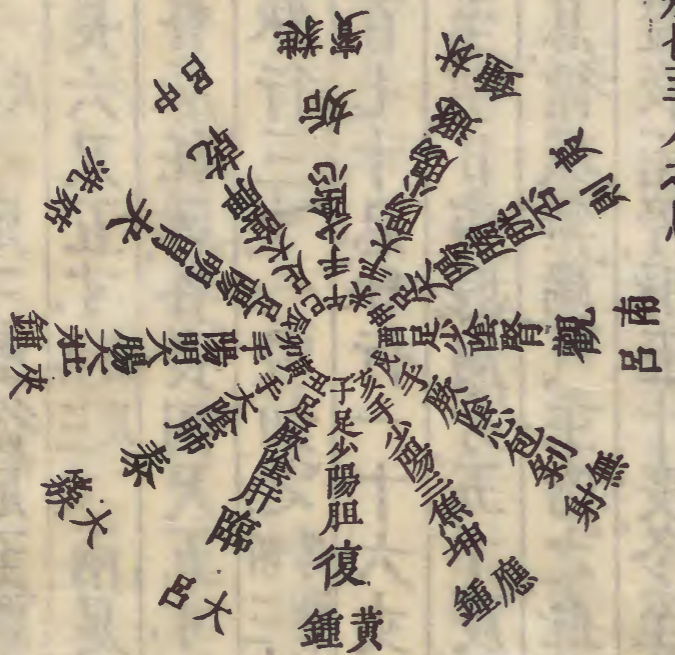 子足少陽胆復黃鍾
丑足厥陰肝臨大呂
寅手太陰肺泰大簇
卯手陽明大腸大壯夾鍾
辰足陽明胃夬姑洗
巳足太陰脾乾仲呂
午手少陰心姤蕤賓
未手太陽小腸遯林鍾
申足太陽膀胱否夷則
酉足少陰腎觀南呂
戌手厥陰心包剝無射
亥手少陽三焦坤應鍾